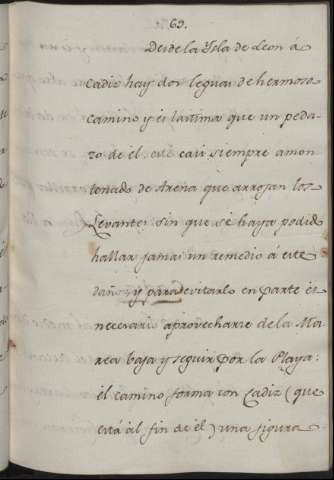 63.
Desde la Ysla de Leon á
Cadiz hay dos leguas de hermoso
camino y és lastima que un peda-
zo de él esté casi siempre amon-
tonado de Arena que arrojan los
Levantes sin que se haya podido
hallar jamas un remedio á este
daño y para evitarlo en parte és
necesario aprovecharse de la Ma-
rea baja y seguir por la Playa:
él camino forma con Cadiz (que
está al fin de él) una figura